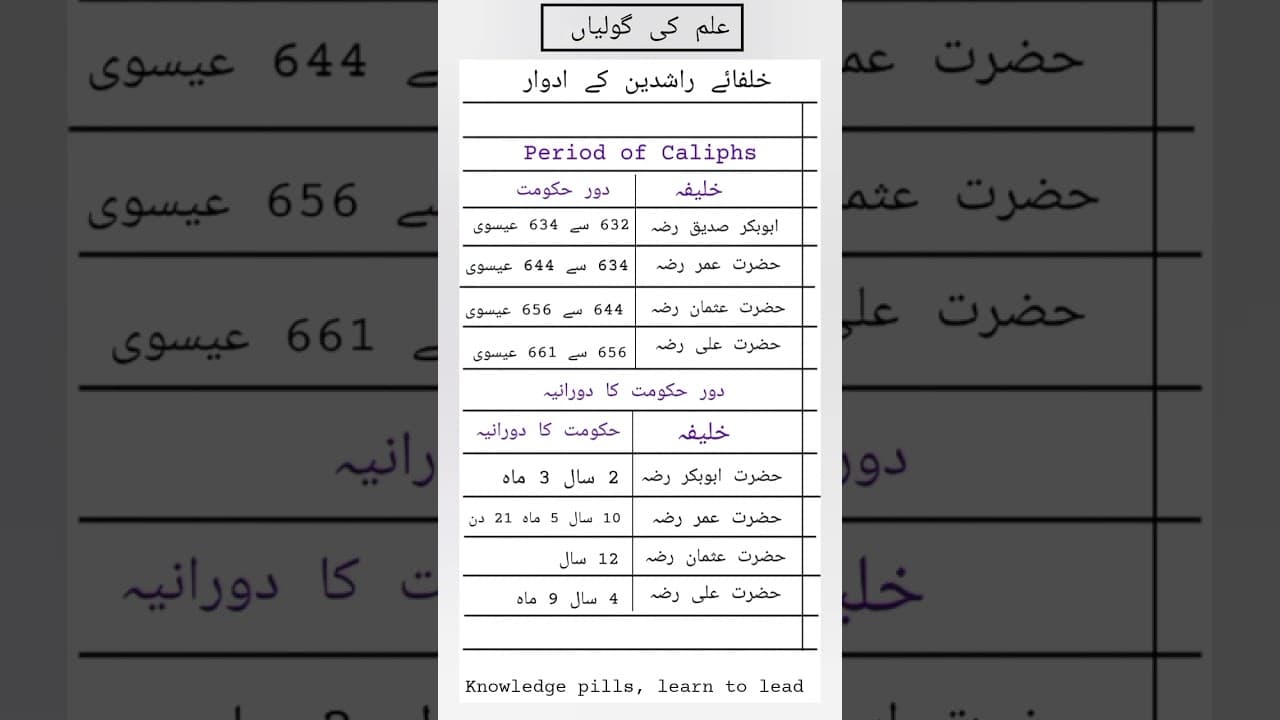 علم کی گولیاں
خلفائے راشدین کے ادوار
Period of Caliphs
خلیفہ دور حکومت
ابوبکر صدیق رضہ 632 سے 634 عیسوی
حضرت عمر رضہ 634 سے 644 عیسوی
حضرت عثمان رضہ 644 سے 656 عیسوی
حضرت علی رضہ 656 سے 661 عیسوی
دور حکومت کا دورانیہ
خلیفہ حکومت کا دورانیہ
حضرت ابوبکر رضہ 2 سال 3 ماہ
حضرت عمر رضہ 10 سال 5 ماہ 21 دن
حضرت عثمان رضہ 12 سال
حضرت علی رضہ 4 سال 9 ماہ
Knowledge pills, learn to lead